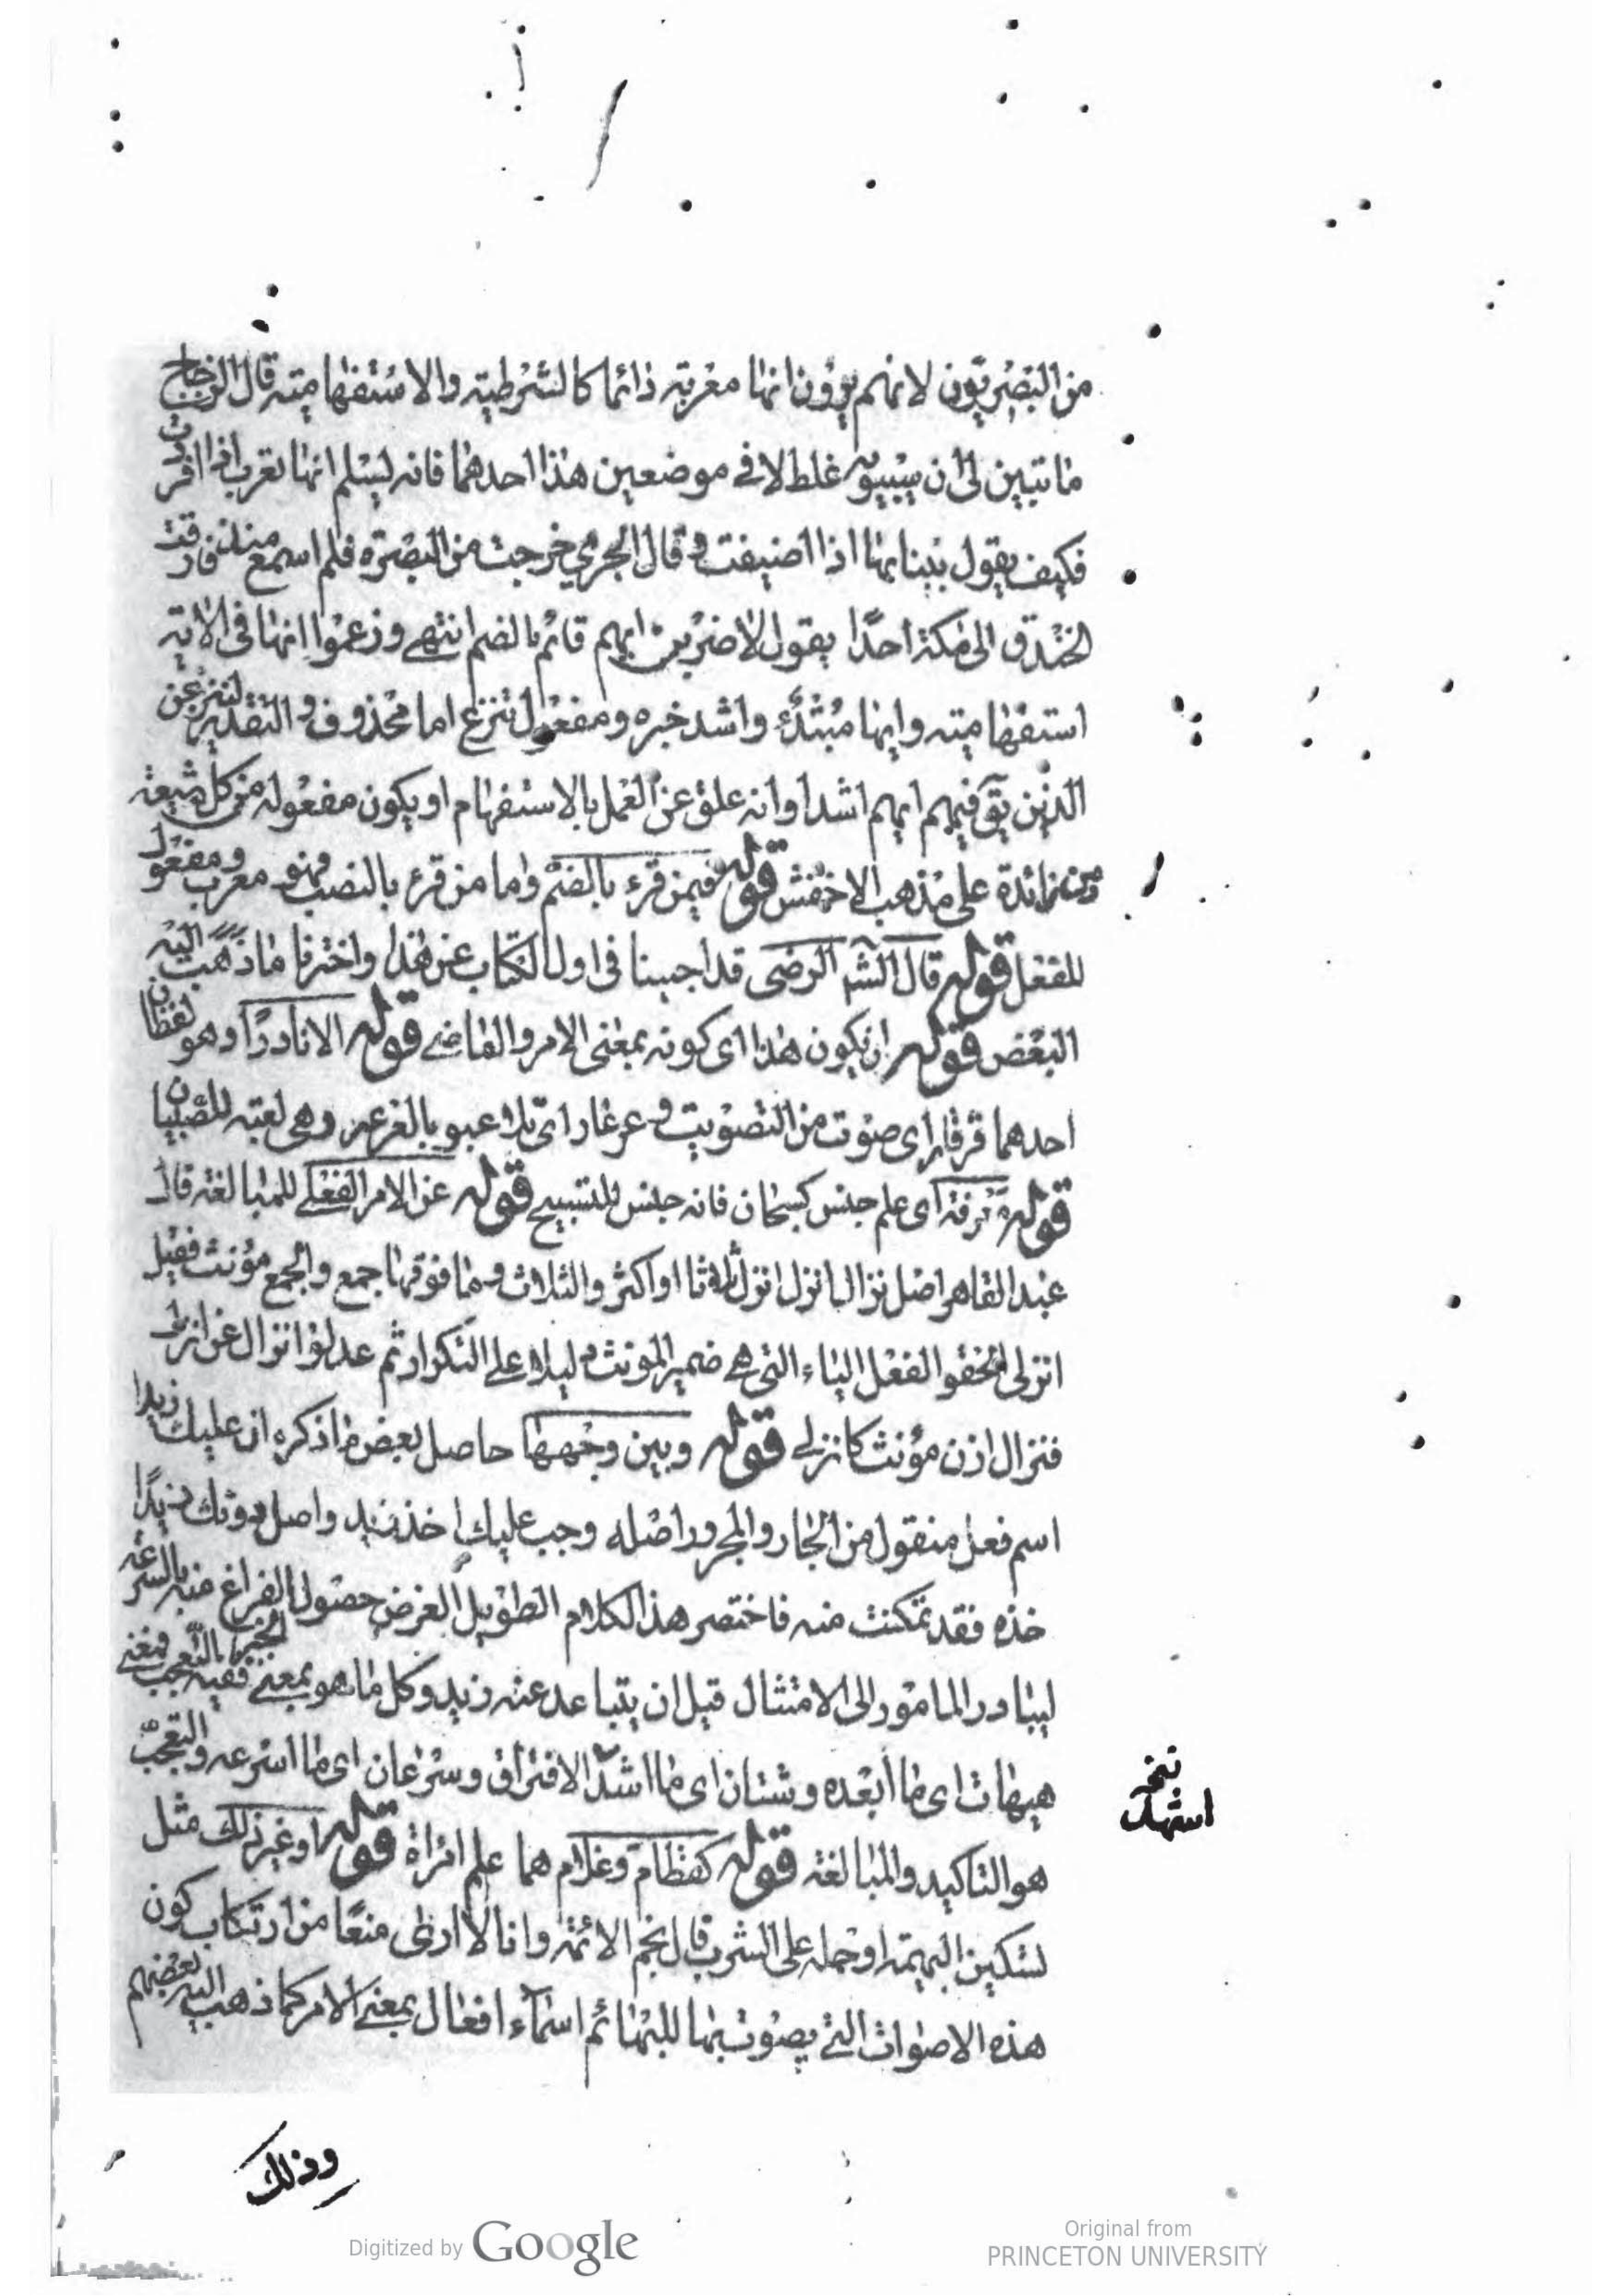 من البصريون لانهم يرون انها معربة دائما كالشرطية والاستفهامية قال الزجاج
ما تبين لى ان سيبويه غلط الا في موضعين هذا احدهما فانه ليسلم انها تعرب اذا افردت
فكيف يقول ببنائها اذا اضيفت وقال الجرمي خرجت من البصرة فلم اسمع منذ فارقت
الخندق الى مكة احدًا يقول لاضربن ايهم قائم بالضم انتهى وزعموا انها في الاية
استفهامية وانها مبتدء واشد خبره ومفعول ننزع اما محذوف والتقدير لننزعن
الذين يق فيهم ايهم اشد او انه علق عن العمل بالاستفهام او يكون مفعوله من كل شيعة
ومن زائدة على مذهب الاخفش قوله فيمن قرء بالضم واما من قرء بالنصب فهو معرب ومفعول
للفعل قوله قال الشر الرضى قد اجبنا في اول الكتاب عن هذا واخترنا ما ذهب اليه
البعض قوله ان يكون هذا اى كونه بمعنى الامر والماضي قوله الا نادرًا وهو لفظان
احدهما قرقار اى صوت من التصويت وعرعار اى تلاعبو بالعرعر وهى لعبة للصبيان
قوله معرفة اى علم جنس كسبحان فانه جنس للتسبيح قوله عن الامر الفعلي للمبالغة قال
عبد القاهر اصل نزال انزل انزل ثلاثا او اكثر والثلاث وما فوقها جمع والجمع مؤنث فقيل
انزلى الحقو الفعل الياء التى هي ضمير المونث دليلا على التكرار ثم عدلوا نزال عن انزلى
فنزال اذن مؤنث كانزلى قوله وبين وجهها حاصل بعض ما ذكره ان عليك زيدا
اسم فعل منقول من الجار والمجرور اصله وجب عليك اخذ زيد واصل دونك زيدًا
خذه فقد تمكنت منه فاختصر هذا الكلام الطويل لغرض حصول الفراغ منه بالسرعة
ليبادر المامور الى الامتثال قبل ان يتباعد عنه زيد وكل ما هو بمعنى الخبر ففيه التعجب فمعنى
هيهات اى ما ابعده وشتان اى ما اشد الافتراق وسرعان اى ما اسرعه والتعجب
هو التاكيد والمبالغة قوله كقطام وغلام هما علم امراة قوله او غير ذلك مثل
لتسكين البهيمة او حمله على الشرب قال نجم الائمة وانا لا ارى منعًا من ارتكاب كون
هذه الاصوات التي يصوت بها للبهائم اسماء افعال بمعنى الامر كما ذهب اليه بعضهم
وذلك
Digitized by Google
Original from
PRINCETON UNIVERSITY